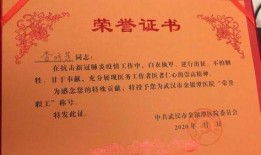 荣誉证书
同志：
在抗击新冠肺炎疫情工作中，白衣执甲、逆行出征、不怕牺
牲、甘于奉献，充分展现医务工作者医者仁心的崇高精神。
为感念您的特殊贡献，特授予您为武汉市金银潭医院“荣誉
职工”称号。
特发此证。
中共武汉市金银潭医院委员会
2020年